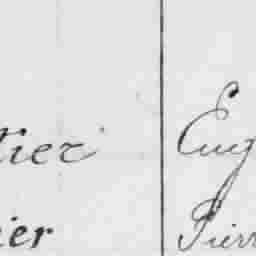 tier Eug
ier Pierr